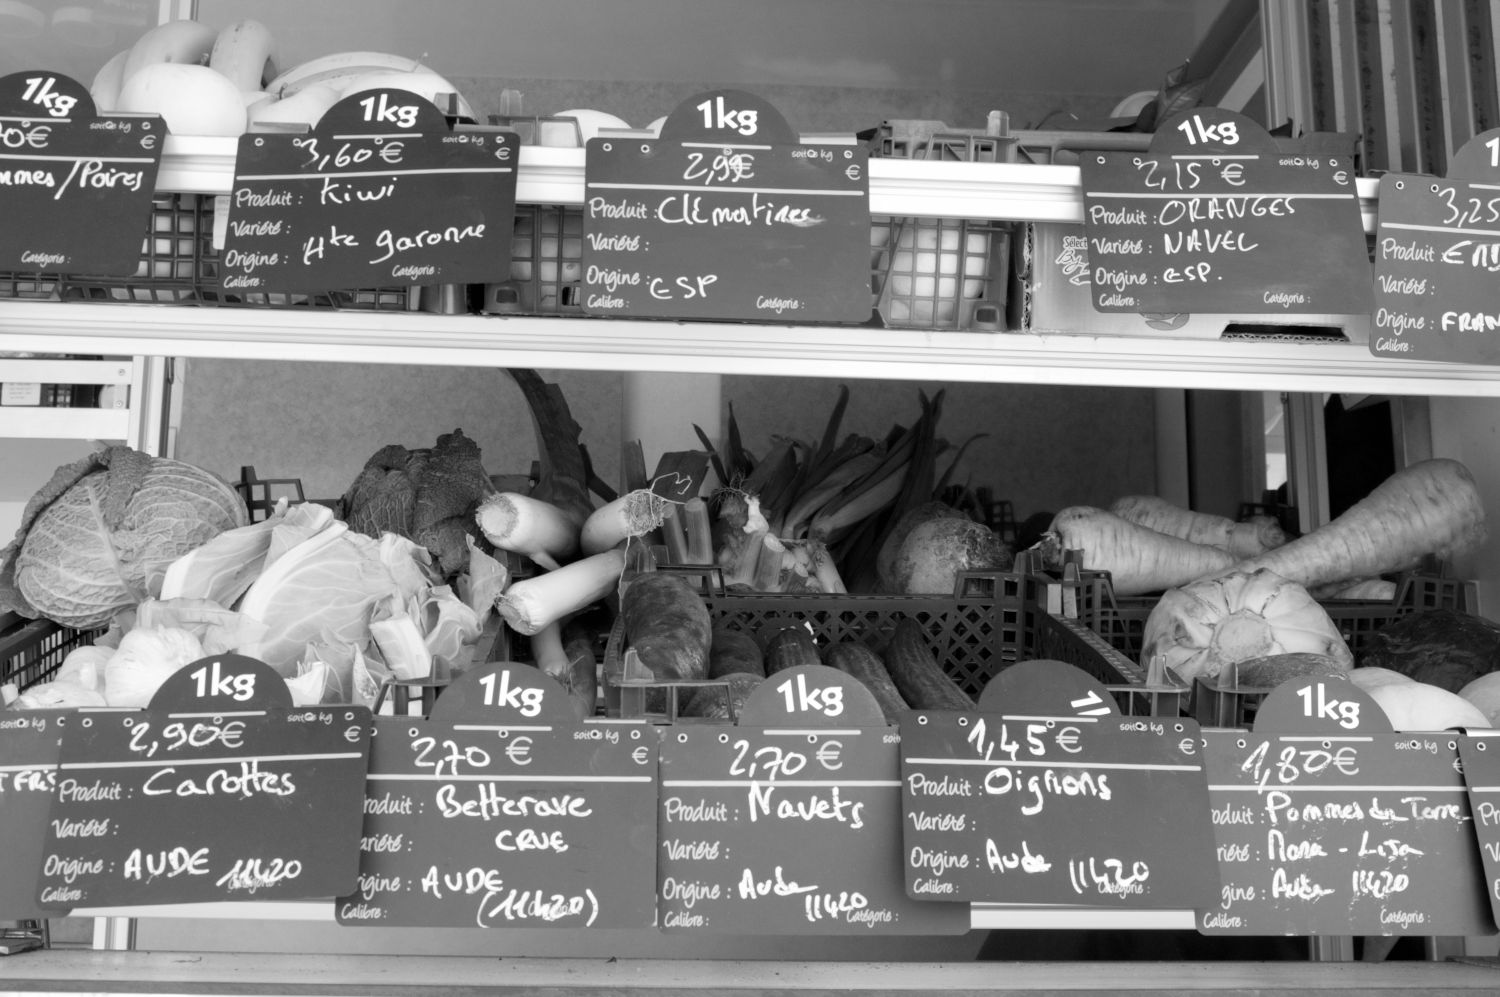 1kg
0€ soit 0€ kg €
mmes/Poires
Catégorie :
1kg
3,60€ soit 0€ kg €
Produit : Kiwi
Variété :
Origine : Hte garonne
Calibre : Catégorie :
1kg
2,99€ soit 0€ kg €
Produit : Clémentines
Variété :
Origine : ESP
Calibre : Catégorie :
1kg
2,15€ soit 0€ kg €
Produit : ORANGES
Variété : NAVEL
Origine : ESP.
Calibre : Catégorie :
1
3,25
Produit :
Variété :
Origine : FRAN
Calibre :
soit 0€ kg
1kg
2,90€ soit 0€ kg €
Produit : Carottes
Variété :
Origine : AUDE 11420
Calibre : Catégorie :
1kg
2,70€ soit 0€ kg €
roduit : Betterave
ariété : CRUE
rigine : AUDE
(11420)
Calibre :
1kg
2,70€ soit
Produit : Navets
Variété :
Origine : Aude 11420
Calibre : Catégorie :
1,45€ soit 0€ kg €
Produit : Oignons
Variété :
Origine : Aude 11420
Calibre : Catégorie :
1kg
1,80€ soit 0€ kg €
oduit : Pommes de Terre
riété : Mona - Lisa
gine : Aude 11420
Calibre : Catégorie :